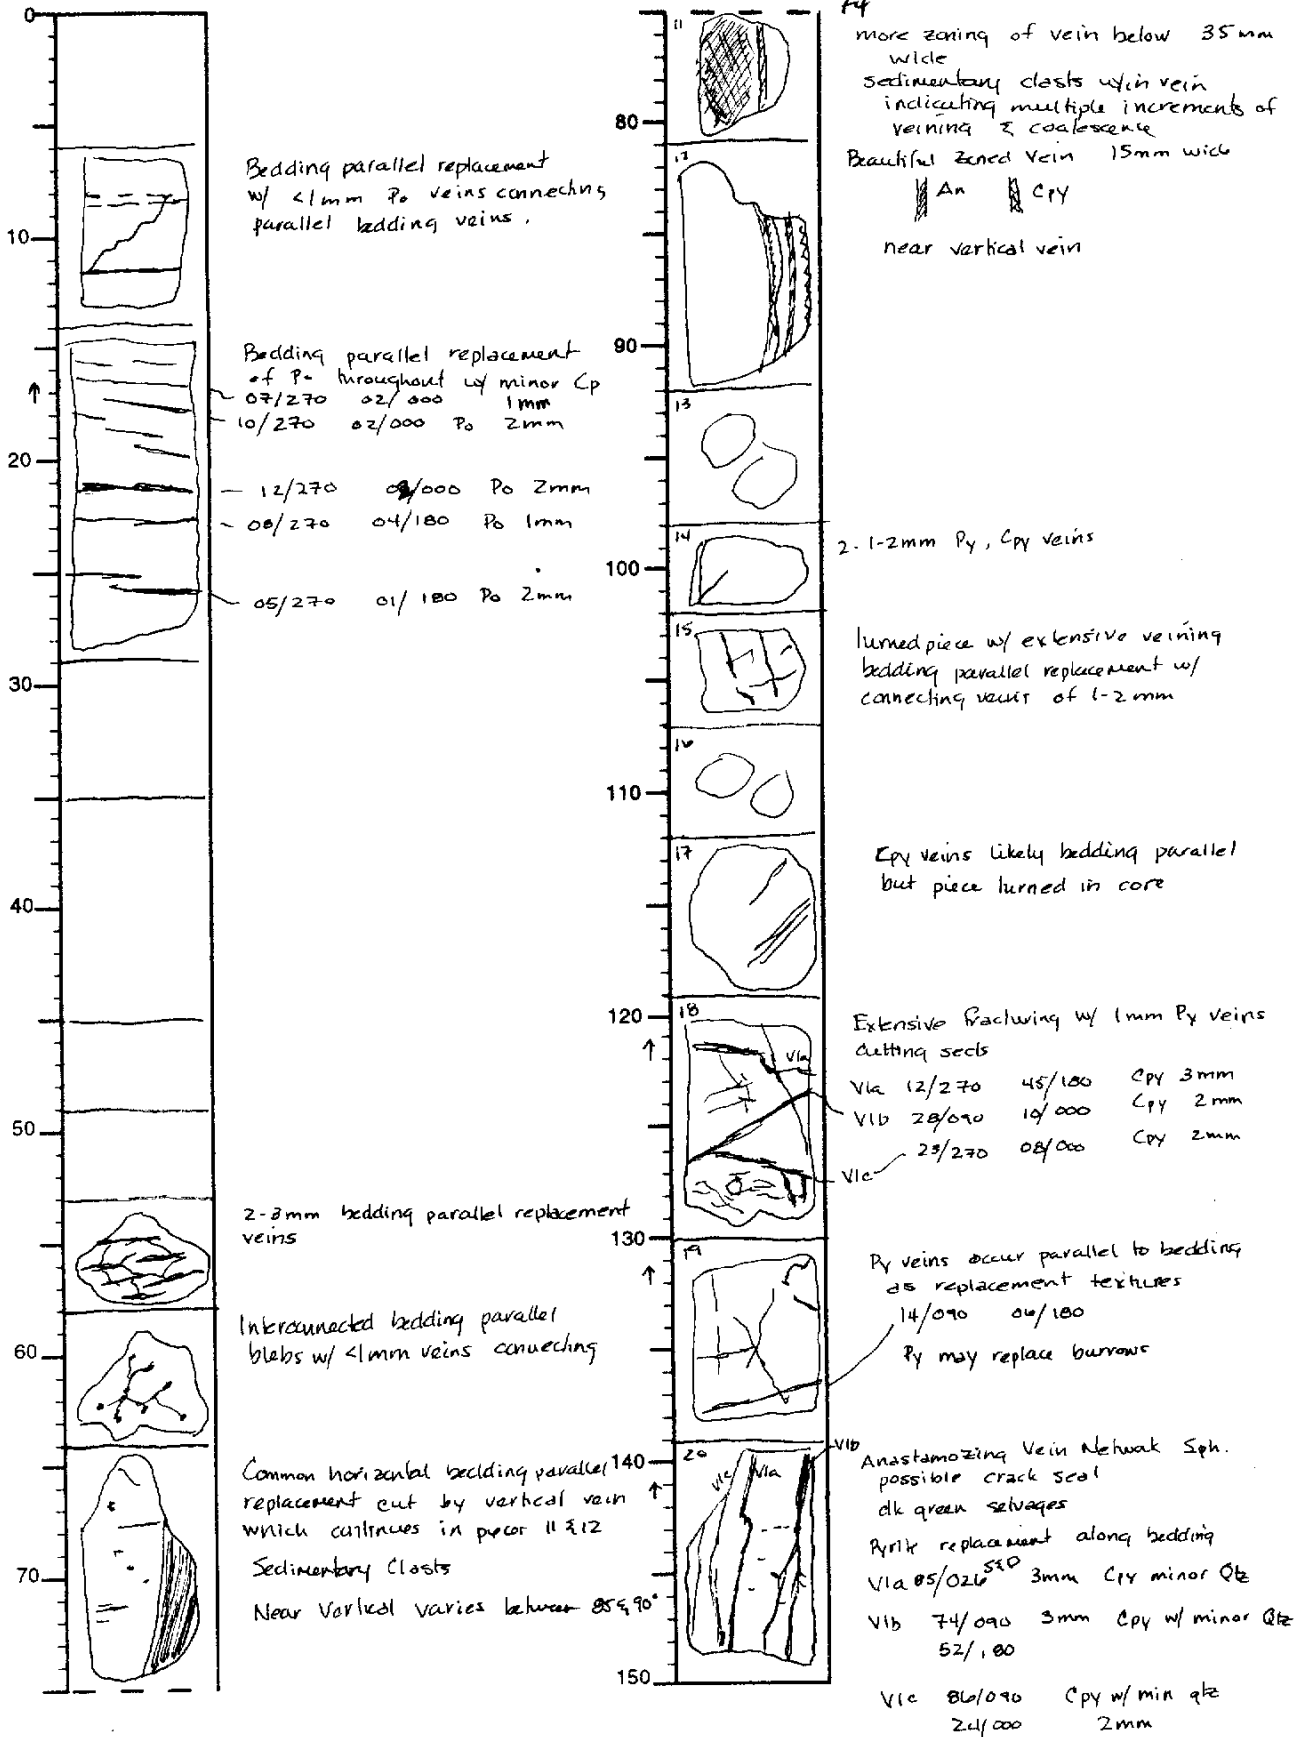 0
10
20
30
40
50
60
70
Bedding parallel replacement
w/ <1mm Po veins connecting
parallel bedding veins.
Bedding parallel replacement
of Po throughout w/ minor Cp
07/270 02/000 1mm
10/270 02/000 Po 2mm
12/270 /000 Po 2mm
08/270 04/180 Po 1mm
05/270 01/180 Po 2mm
2-3mm bedding parallel replacement
veins
Interconnected bedding parallel
blebs w/ <1mm veins connecting
Common horizontal bedding parallel
replacement cut by vertical vein
which continues in pieces 11 & 12
Sedimentary Clasts
Near Vertical varies between 85 & 90°
80
90
100
110
120
130
140
150
11
more zoning of vein below 35mm
wide
sedimentary clasts w/in vein
indicating multiple increments of
veining & coalescence
12
Beautiful zoned vein 15mm wide
An Cpy
near vertical vein
13
14
2-1-2mm Py, Cpy veins
15
Turned piece w/ extensive veining
bedding parallel replacement w/
connecting veins of 1-2mm
16
17
Cpy veins likely bedding parallel
but piece turned in core
18
V1a
Extensive fracturing w/ 1mm Py veins
cutting seds
V1a 12/270 45/180 Cpy 3mm
V1b 28/090 10/000 Cpy 2mm
V1c 23/270 08/000 Cpy 2mm
19
Py veins occur parallel to bedding
as replacement textures
14/090 06/180
Py may replace burrows
20
V1c V1a V1b
Anastamozing Vein Network Sph.
possible crack seal
dk green selvages
Pyrite replacement along bedding
V1a 85/026 S&D 3mm Cpy minor Qtz
V1b 74/090 3mm Cpy w/ minor Qtz
52/180
V1c 86/090 Cpy w/ min qtz
24/000 2mm